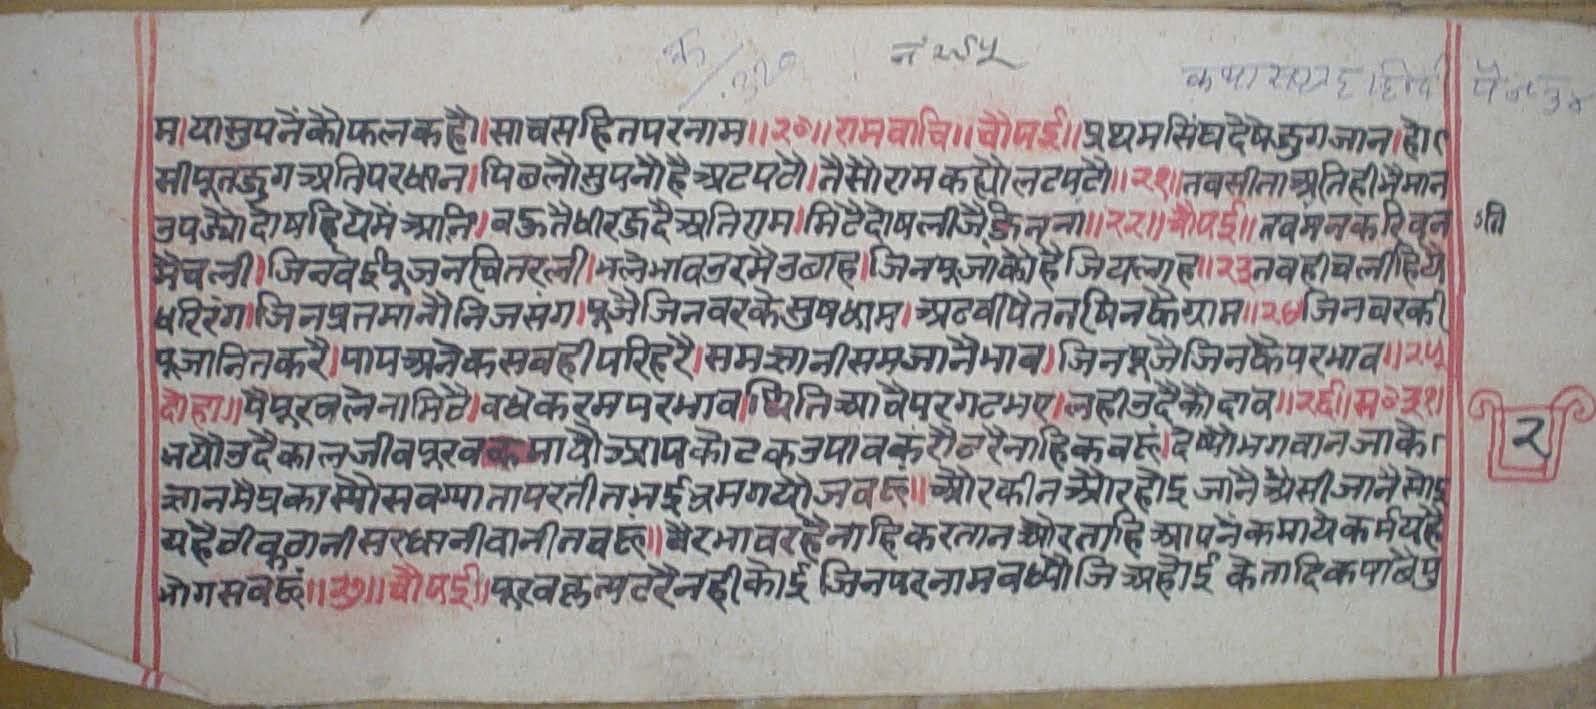 नं २५५
माया सुपनैं कौ फल कहौ॥ साच सहित परनाम॥२०॥ राम वाचि॥ चौपई॥ प्रथम सिंघ देषे जुग जान। हो
सी पूत जुग अति परधान। पिछलौ सुपनौ है अटपटो। तैसो राम कह्यौ लटपटौ॥२१॥ तव सीता अति ही भै मान
उपज्यो दोष हिये मैं आनि। वऊ तै धीरज दै अति राम। मिटै दोष लीजै जिन ना॥२२॥ चौपई॥ तव मन करि वन
ति
मै चली। जिन वेई पूजन चित रली। भले भाव उर मै उछाह। जिन पूजा को है जिय लाह॥२३ तव ही चली हिये
धरि रंग। जिन प्रतमा नौ निज संग। पूजै जिनवर के सुष धाम। अटवी पेतन षिन कै ग्राम॥२४ जिनवर की
पूजा नित करै। पाप अनेक सवही परिहरै। समझानी सम जानै भाव। जिन पूजै जिनकै परभाव॥२५
दोहा॥ पै पूरवले ना मिटै। वधे करम परभाव। थिति आवै परगट भए। लही उदै कौ दाव॥२६॥ स॰३१।
भयौ उदै काल जीव पूरव कमायौ आप कोटक उपाव करौ टरै नाहि कवहूं। देष्यो भगवान जाके
ज्ञान मै प्रकास्यो सव ग्याता परतीत भई भ्रम गयो जवहूं॥ और की न और होइ जानै ऐसी जानै सोइ
यहै ठीक ठानी सरधानी वानी तवहूं॥ वैर भाव रहै नाहि करता न और ताहि आपनैं कमाये कर्म यहै
भोग सवहूं॥२७॥ चौपई॥ पूरव कृत्य टरै नही कोई जिन परनाम वध्यौ जि अहोई केतादिक पावै पु
२